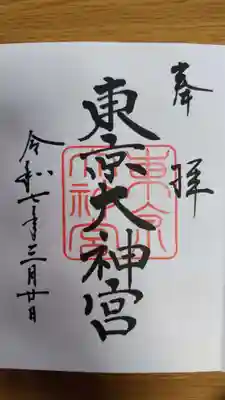 奉拝
東京大神宮
東京大神宮
令和七年三月廿日